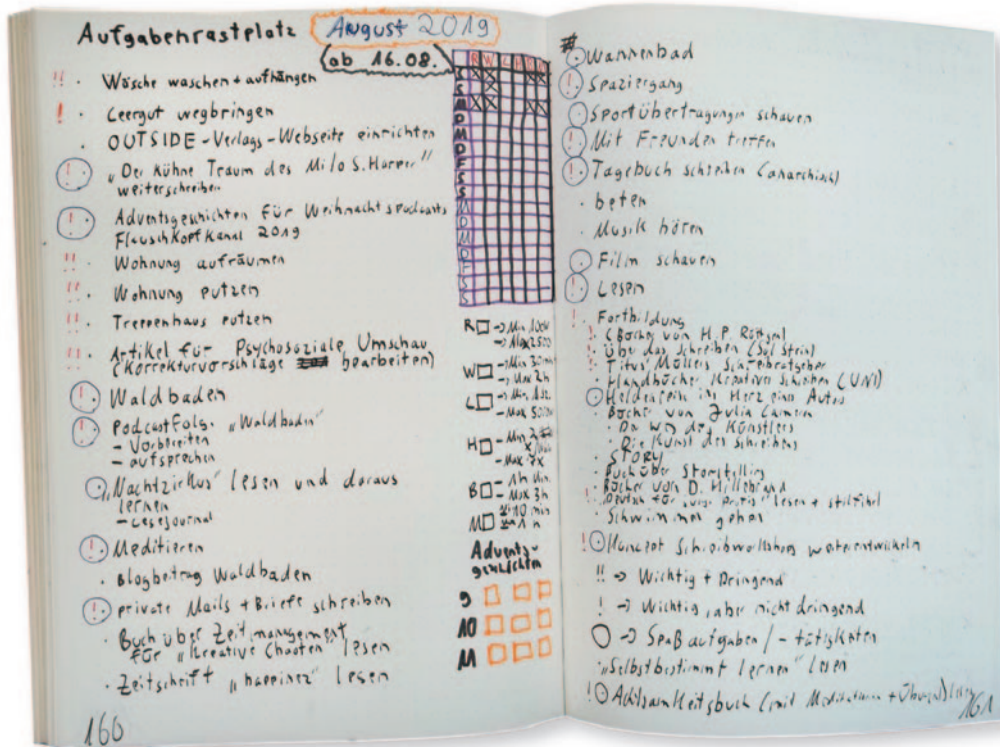 Aufgabenrastplatz August 2019
ab 16.08.
!! · Wäsche waschen + aufhängen
! · Leergut wegbringen
· OUTSIDE-Verlags-Webseite einrichten
! · „Der kühne Traum des Milo S. Harper"
weiterschreiben
! · Adventsgeschichten für Weihnachtspodcasts
Flauschkopfkanal 2019
!! · Wohnung aufräumen
!! · Wohnung putzen
!! · Treppenhaus putzen
!! · Artikel für Psychosoziale Umschau
(Korrekturvorschläge bearbeiten)
! · Waldbaden
! · Podcastfolge „Waldbaden"
- Vorbereiten
- aufsprechen
· „Nachtzirkus" lesen und daraus
lernen
- Lesejournal
! · Meditieren
· Blogbeitrag Waldbaden
! · private Mails + Briefe schreiben
· Buch über Zeitmanagement
für „Kreative Chaoten" lesen
· Zeitschrift „happinez" lesen
160
R W L H B
S
S
M
D
M
D
F
S
S
M
D
M
D
F
S
S
R → Min 100
→ Max 2500
W - Min 30 min
- Max 2h
L - Min
- Max
H - Min 2
- Max 7x
B - 1h Min
- Max 3h
M 10 min
1h
Advents-
geschichten
9
10
11
· Wannenbad
! · Spaziergang
· Sportübertragungen schauen
! · Mit Freunden treffen
! · Tagebuch schreiben (anarchisch)
· beten
· Musik hören
· Film schauen
! · Lesen
! · Fortbildung
! · (Bücher von H.P. Röntgen)
! · Über das Schreiben (Sol Stein)
! · Titus Müllers Schreibratgeber
· Handbücher Kreatives Schreiben (UNI)
· Heldenreise im Herz eines Autos
· Bücher von Julia Cameron
· Der Weg des Künstlers
· Die Kunst des Schreibens
· STORY
· Buch über Storytelling
· Bücher von D. Hillebrand
! · Deutsch für junge Profis" lesen + stilfibel
· Schwimmen gehen
! · Konzept Schreibworkshops weiterentwickeln
!! → Wichtig + Dringend
! → Wichtig, aber nicht dringend
→ Spaßaufgaben / -tätigkeiten
· „Selbstbestimmt lernen" lesen
! · Achtsamkeitsbuch (mit Meditationen + Übungen) lesen
161